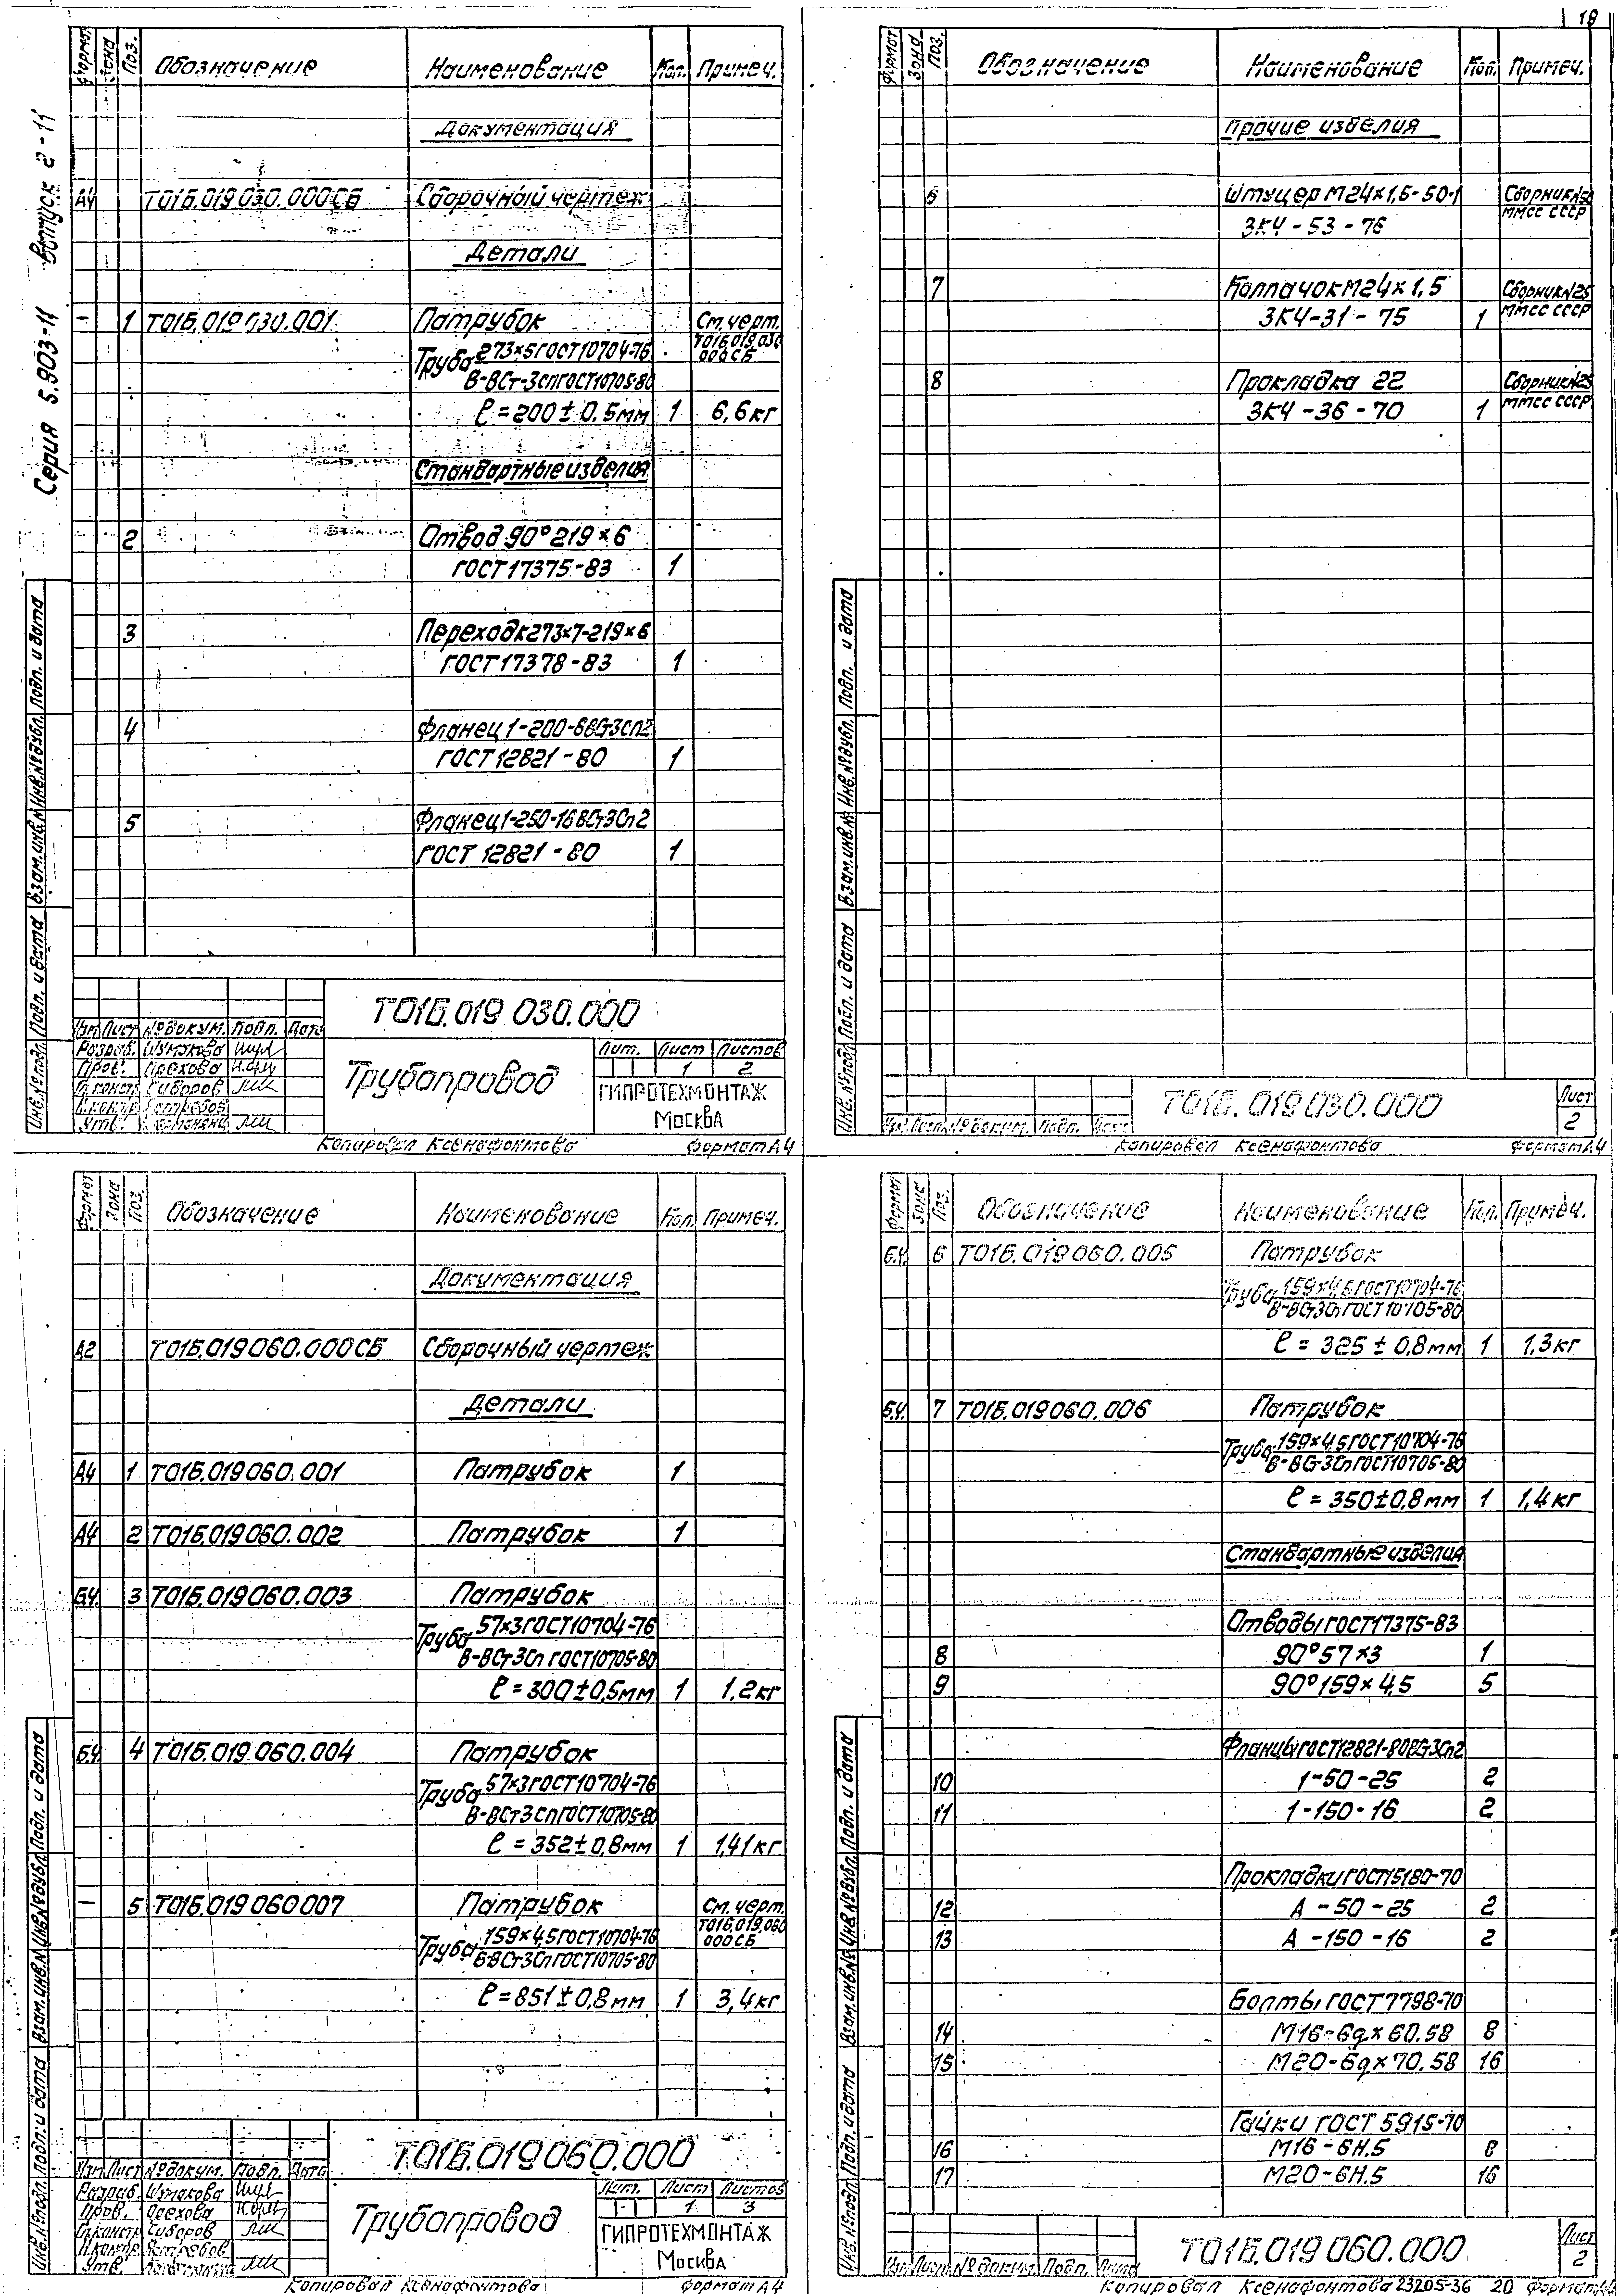 Серия 5.903-11 Выпуск 2-11
Формат Зона Поз. Обозначение Наименование Кол. Примеч.
Документация
А4 Т01Б.019.030.000СБ Сборочный чертеж
Детали
- 1 Т01Б.019.030.001 Патрубок См. черт.
Труба 273×5 ГОСТ 10704-76 Т01Б.019.030
В-ВСт-3сп ГОСТ 10705-80 000СБ
ℓ=200±0.5мм 1 6,6кг
Стандартные изделия
2 Отвод 90° 219×6
ГОСТ 17375-83 1
3 Переход К273×7-219×6
ГОСТ 17378-83 1
4 Фланец 1-200-6ВСт3сп2
ГОСТ 12821-80 1
5 Фланец 1-250-16ВСт3Сп2
ГОСТ 12821-80 1
Т01Б.019.030.000
Изм Лист № докум. Подп. Дата
Разраб. Шумакова
Пров. Орехова
Гл.констр. Сиворов
Н.контр.
Утв.
Трубопровод
Лит. Лист Листов
1 2
ГИПРОТЕХМОНТАЖ
Москва
Инв.№ подл. Подп. и дата Взам.инв.№ Инв.№ дубл. Подп. и дата
Копировал Ксенафонтова Формат А4
18
Формат Зона Поз. Обозначение Наименование Кол. Примеч.
Прочие изделия
6 Штуцер М24×1,5-50-1 Сборник
3К4-53-76 ММСС СССР
7 Колпачок М24×1,5 Сборник №25
3К4-31-75 1 ММСС СССР
8 Прокладка 22 Сборник №25
3К4-36-70 1 ММСС СССР
Инв.№ подл. Подп. и дата Взам.инв.№ Инв.№ дубл. Подп. и дата
Изм. Лист № докум. Подп. Дата
Т01Б.019.030.000
Лист
2
Копировал Ксенафонтова Формат А4
Формат Зона Поз. Обозначение Наименование Кол. Примеч.
Документация
А2 Т01Б.019.060.000СБ Сборочный чертеж
Детали
А4 1 Т01Б.019.060.001 Патрубок 1
А4 2 Т01Б.019.060.002 Патрубок 1
Б.Ч. 3 Т01Б.019.060.003 Патрубок
Труба 57×3 ГОСТ 10704-76
В-ВСт3Сп ГОСТ 10705-80
ℓ=300±0,5мм 1 1,2кг
Б.Ч. 4 Т01Б.019.060.004 Патрубок
Труба 57×3 ГОСТ 10704-76
В-ВСт3Сп ГОСТ 10705-80
ℓ=352±0,8мм 1 1,41кг
- 5 Т01Б.019.060.007 Патрубок См. черт.
Труба 159×4,5 ГОСТ 10704-76 Т01Б.019.060
Б-ВСт3Сп ГОСТ 10705-80 000СБ
ℓ=851±0,8мм 1 3,4кг
Т01Б.019.060.000
Изм. Лист № докум. Подп. Дата
Разраб. Шумакова
Пров. Орехова
Гл.констр. Сиворов
Н.контр.
Утв.
Трубопровод
Лит. Лист Листов
1 3
ГИПРОТЕХМОНТАЖ
Москва
Инв.№ подл. Подп. и дата Взам.инв.№ Инв.№ дубл. Подп. и дата
Копировал Ксенафонтова Формат А4
Формат Зона Поз. Обозначение Наименование Кол. Примеч.
Б.Ч. 6 Т01Б.019.060.005 Патрубок
Труба 159×4,5 ГОСТ 10704-76
В-ВСт3Сп ГОСТ 10705-80
ℓ=325±0,8мм 1 1,3кг
Б.Ч. 7 Т01Б.019.060.006 Патрубок
Труба 159×4,5 ГОСТ 10704-76
В-ВСт-3Сп ГОСТ 10705-80
ℓ=350±0,8мм 1 1,4кг
Стандартные изделия
Отводы ГОСТ 17375-83
8 90° 57×3 1
9 90° 159×4,5 5
Фланцы ГОСТ 12821-80ВСт3Сп2
10 1-50-25 2
11 1-150-16 2
Прокладки ГОСТ 15180-70
12 А-50-25 2
13 А-150-16 2
Болты ГОСТ 7798-70
14 М16-6g×60.58 8
15 М20-6g×70.58 16
Гайки ГОСТ 5915-70
16 М16-6Н.5 8
17 М20-6Н.5 16
Инв.№ подл. Подп. и дата Взам.инв.№ Инв.№ дубл. Подп. и дата
Изм. Лист № докум. Подп. Дата
Т01Б.019.060.000
Лист
2
Копировал Ксенафонтова 23205-36 20 Формат А4